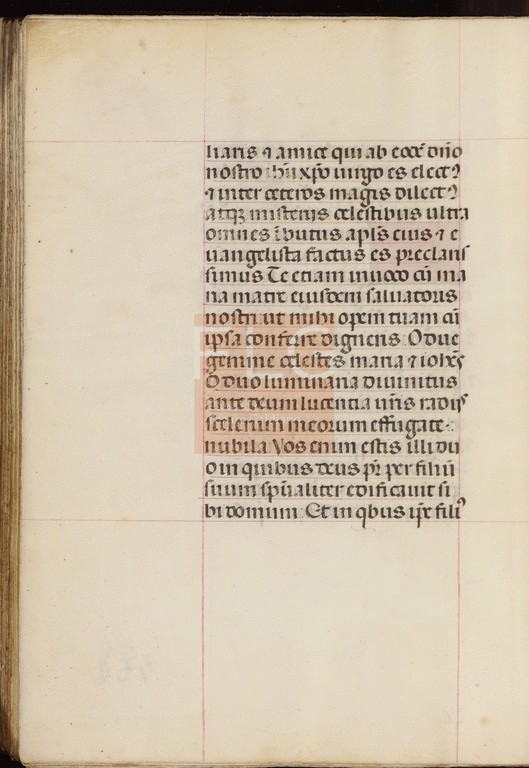 liaris ⁊ amice qui ab eodē dn̄o
nostro ihū xp̄o uirgo es elect9
⁊ inter ceteros magis dilect9
atqꝫ misterijs celestibus ultra
omnes ībutus apl̄s eius ⁊ e
uangelista factus es preclaris
simus Te etiam inuoco cū ma
ria matre eiusdem saluatoris
nostri ut mihi opem tuam cū
ipsa conferre digneris. O due
gemme celestes maria ⁊ ioh̄es
O duo luminaria diuinitus
ante deum lucentia ur̄is radijs
scelerum meorum effugate
nubila. Vos enim estis illi du
o in quibus deus pr̄ per filiū
suum sp̄ualiter edificauit si
bi domum. Et in qbus ip̄e fili9
FLG